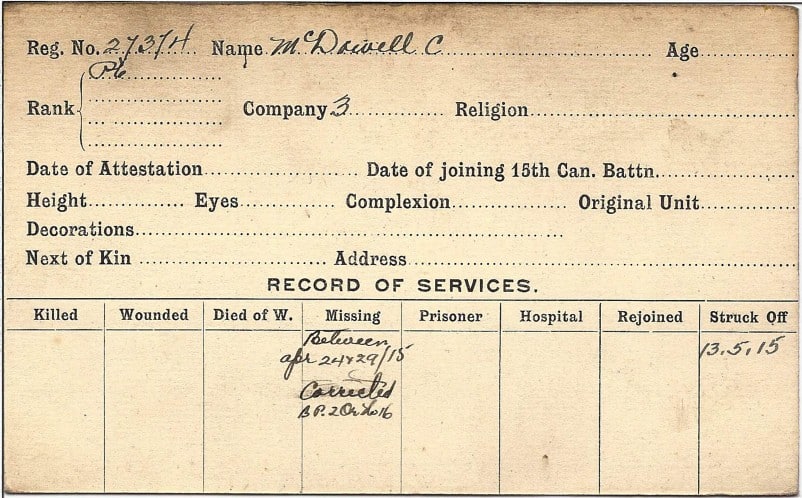 Reg. No. 27374 Name McDowell C Age
Pte
Rank Company 3 Religion
Date of Attestation Date of joining 15th Can. Battn.
Height Eyes Complexion Original Unit
Decorations
Next of Kin Address
RECORD OF SERVICES.
Killed Wounded Died of W. Missing Prisoner Hospital Rejoined Struck Off
Between 13.5.15
apr 24 & 29/15
Corrected